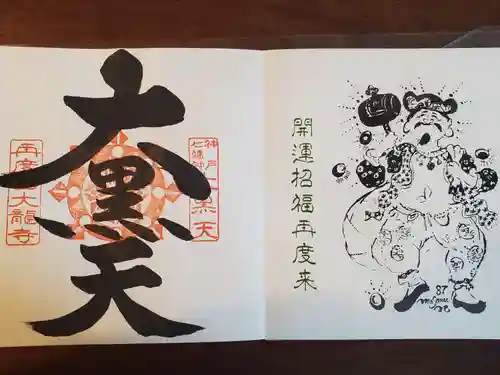 神戸
七福神
大黒天
大黒天
再度山大龍寺
開運招福再度来
87